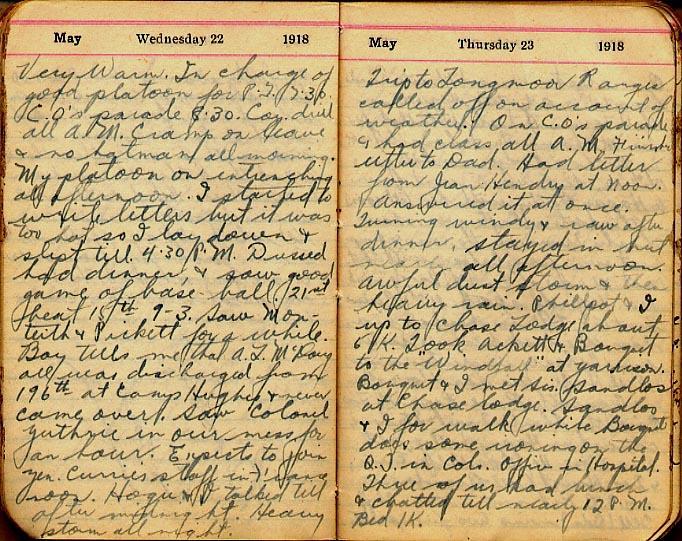 May Wednesday 22 1918
Very Warm. In charge of
good platoon for P.T. 7.30.
C.O's parade 8.30. Coy. drill
all A.M. Cramp on leave
& no batman all morning.
My platoon on intrenching
all afternoon. I started to
write letters but it was
too hot so I lay down &
slept till 4.30 P.M. Dressed
had dinner, & saw good
game of base ball. 21st
beat 19th 9-3. Saw Mon-
teith & Pickett for a while.
Boy tells me that A.L. McDougall
was discharged from
196th at Camp Hughes & never
came over. Saw Colonel
Guthrie in our mess for
an hour. Expects to join
Gen. Curries staff in France
soon. Hogue & I talked till
after midnight. Heavy
storm all night.
May Thursday 23 1918
Trip to Longmoor Ranges
called off on account of
weather. On C.O's parade
& had class all A.M. Finished
letter to Dad. Had letter
from Jean Hendry at noon.
& answered it at once.
Turning windy & raw after
dinner, stayed in hut
nearly all afternoon.
Awful dust storm & then
heavy rain. Philpot & I
up to Chase Lodge about
6 K. Took Ackett & Bouquet
to the "Windfall" at garrison.
Bouquet & I met Sis. Sandlos
at Chase lodge. Sandlos
& I for walk while Bouquet
does some ironing on the
Q.T. in Cols. Office in Hospital.
Three of us had lunch
& chatted till nearly 12 P.M.
Bed 1K.